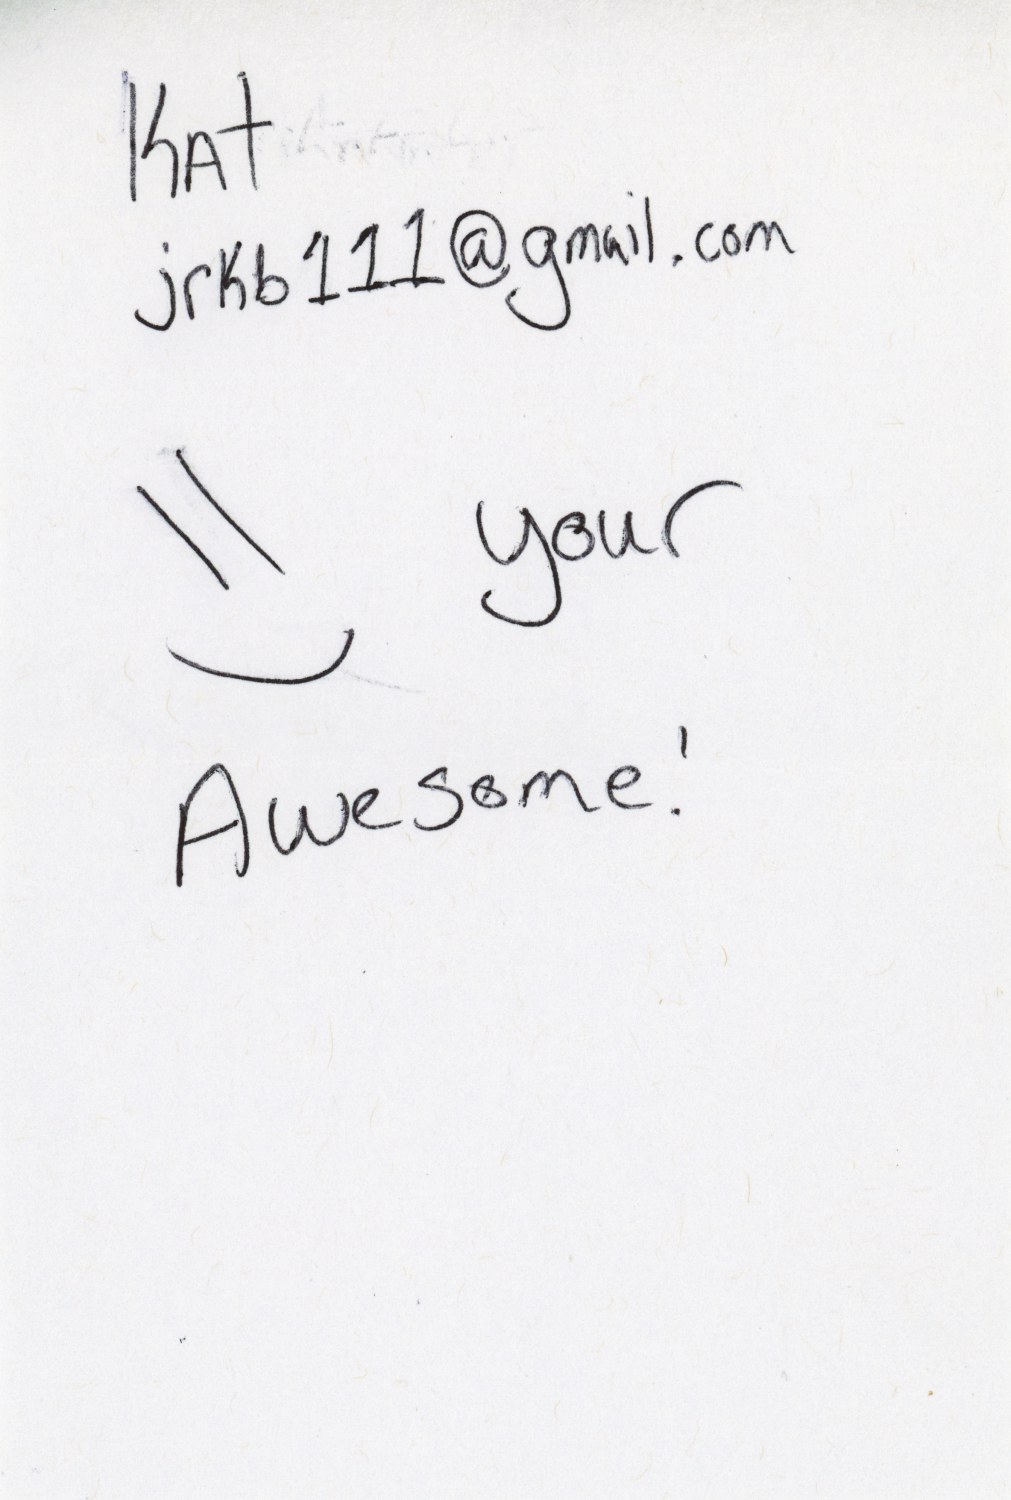 Kat
jrkb111@gmail.com
your
Awesome!